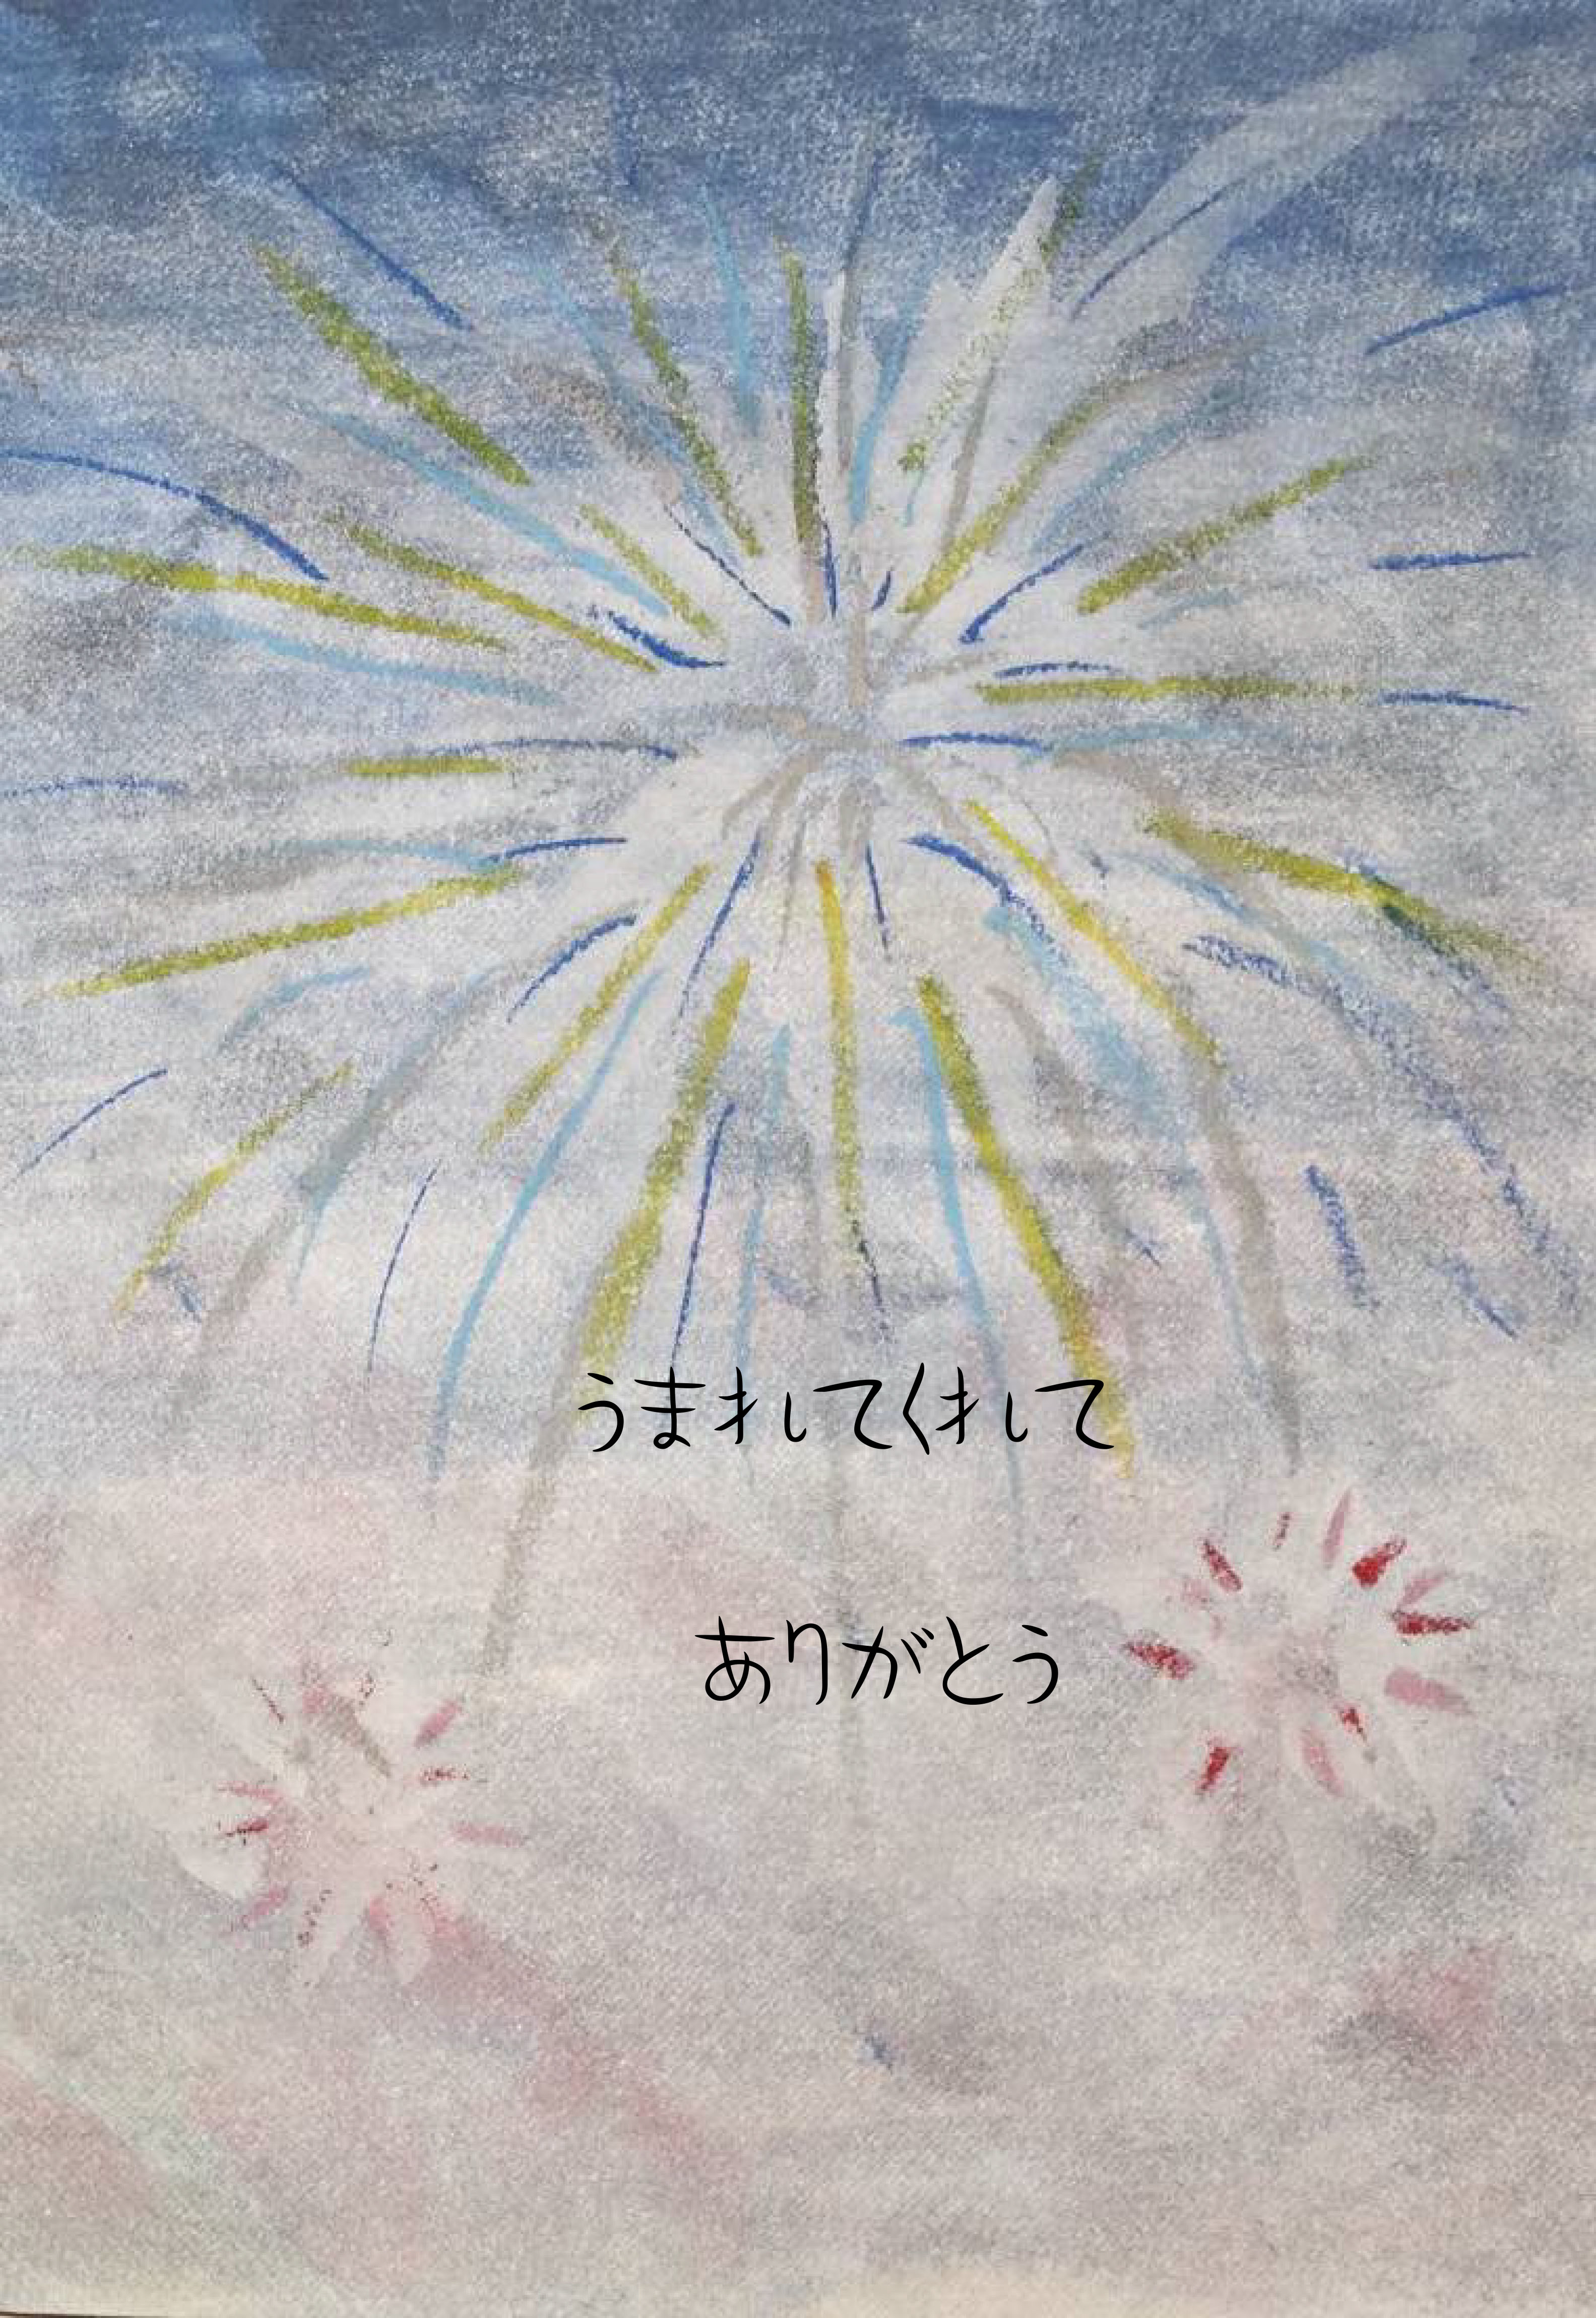 うまれてくれて
ありがとう